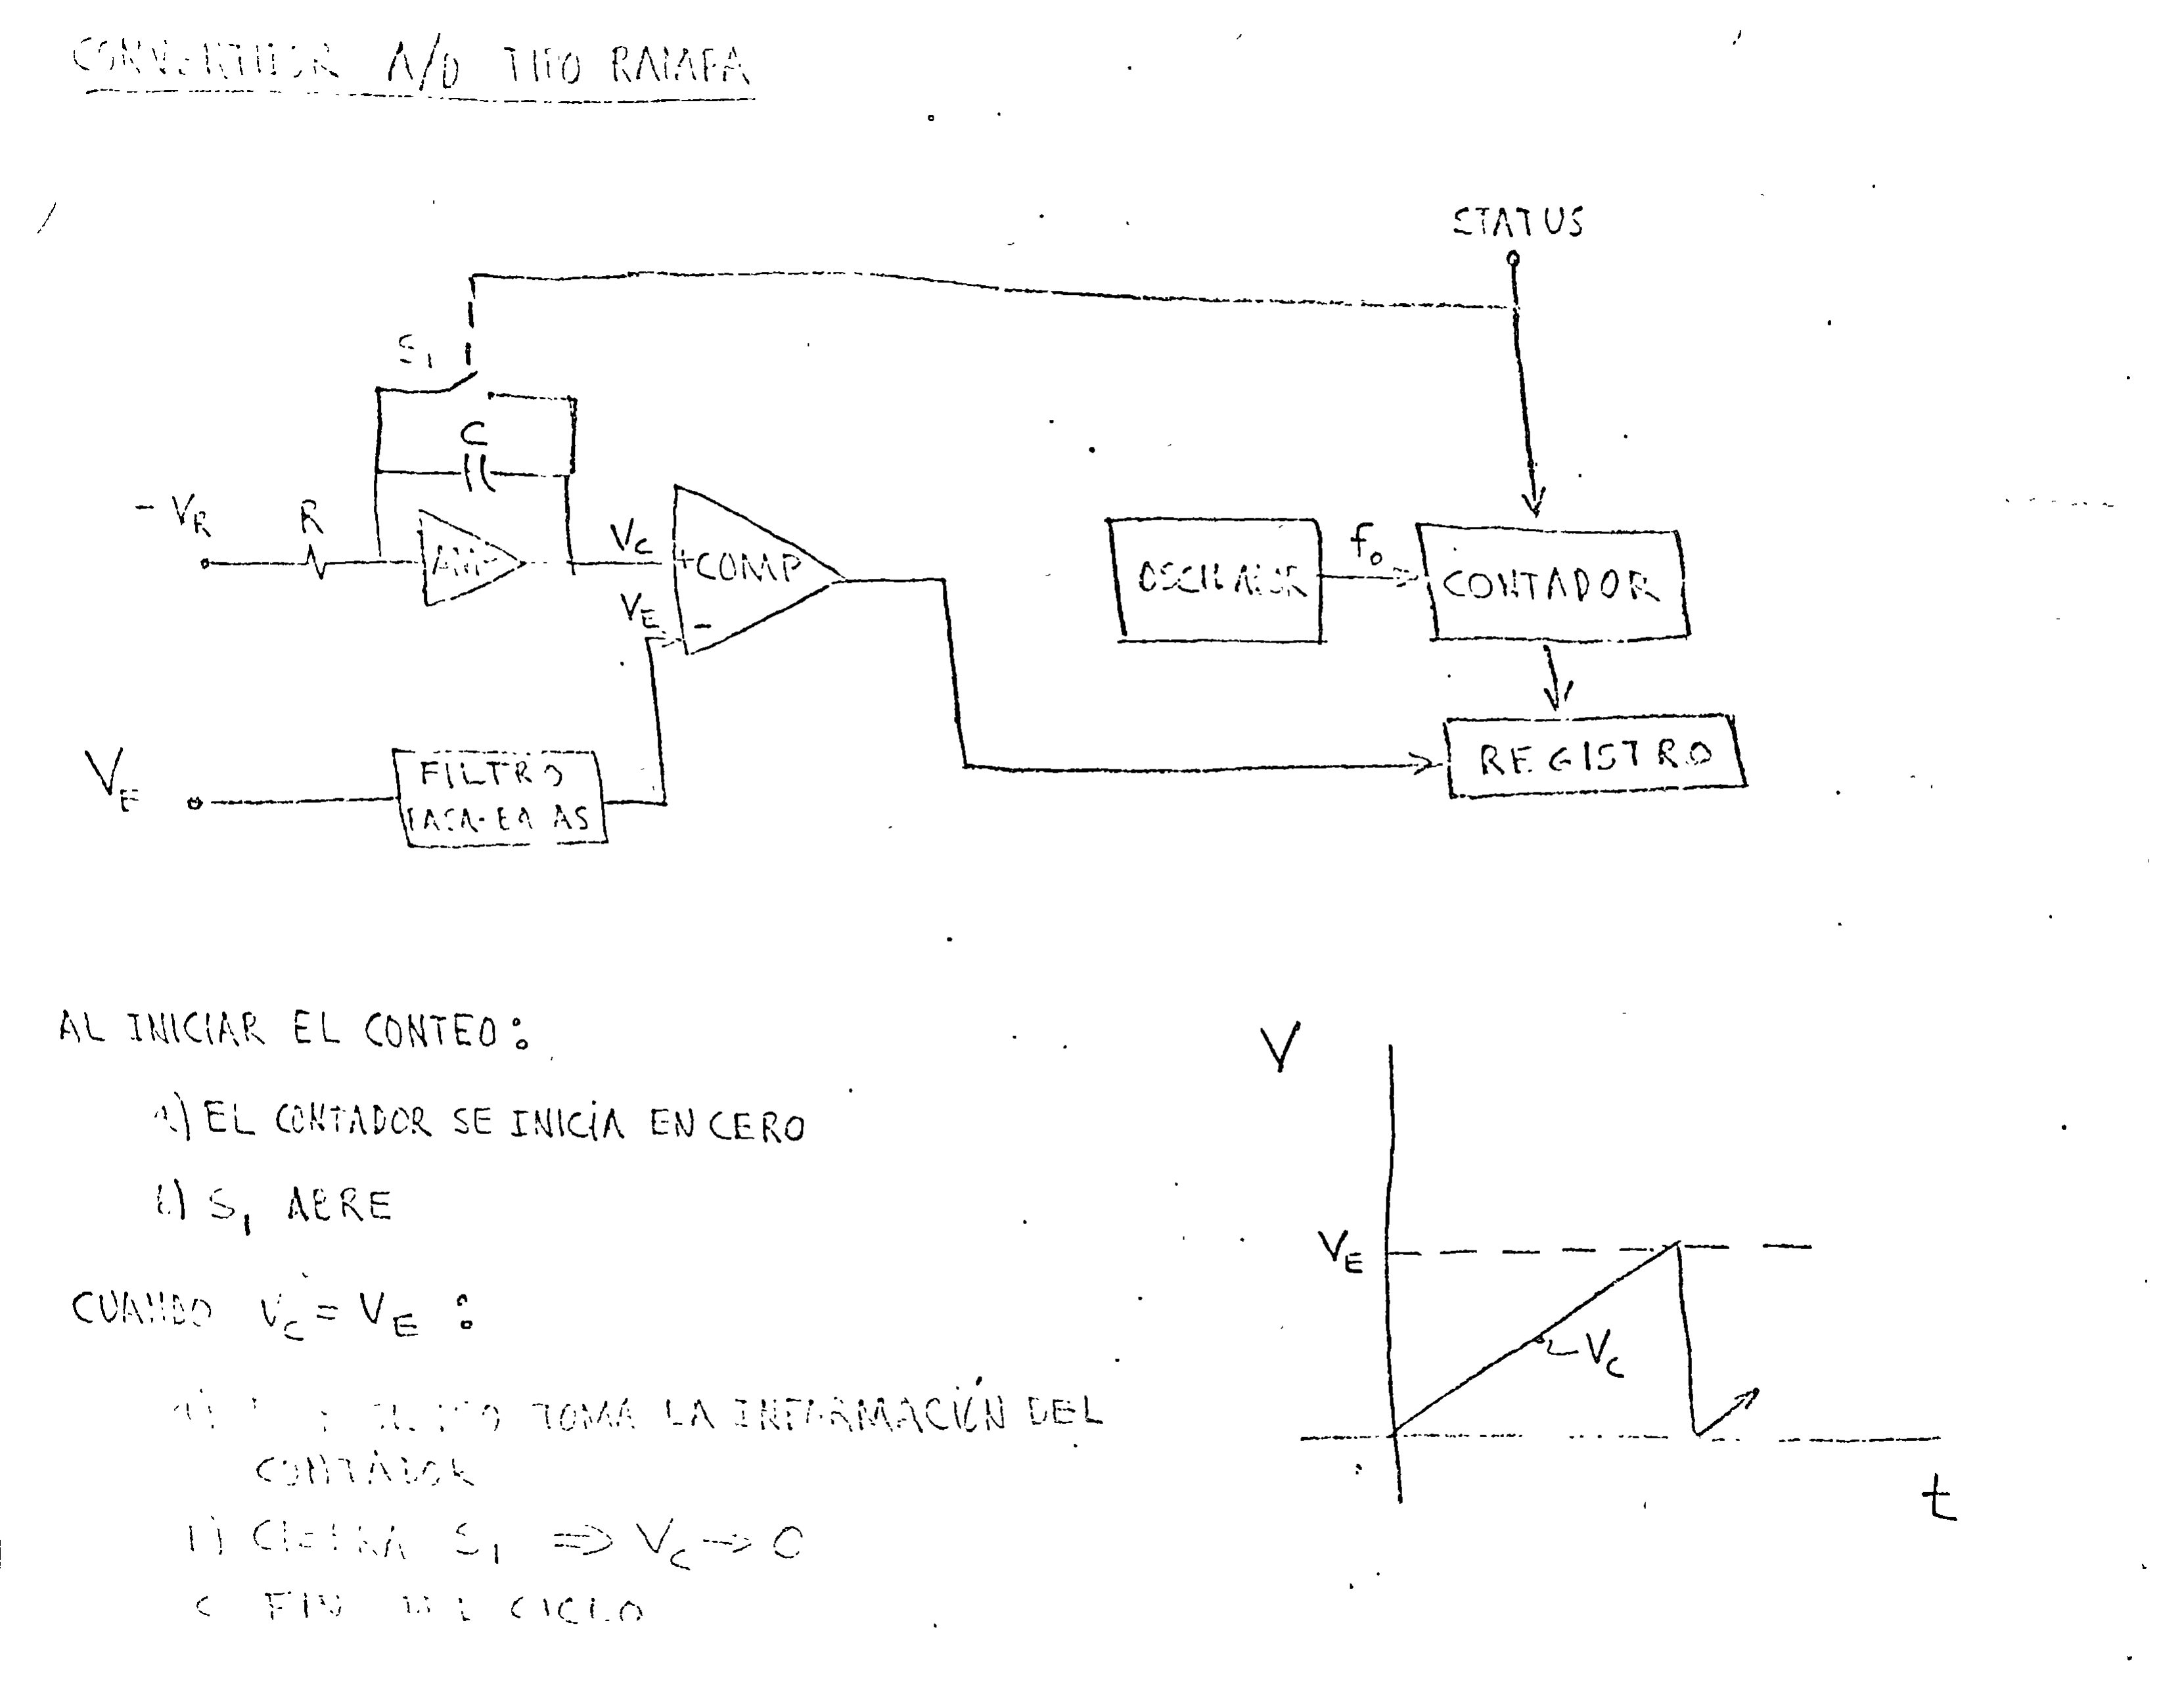 CONVERTIDOR A/D TIPO RAMPA
STATUS
S1
C
- VR
R
AMP
VC
+
COMP
VE
-
OSCILADOR
fo
CONTADOR
REGISTRO
VE
FILTRO
PASA-BAJAS
AL INICIAR EL CONTEO:
a) EL CONTADOR SE INICIA EN CERO
b) S1 ABRE
CUANDO VC = VE :
TOMA LA INFORMACIÓN DEL
CONTADOR
b) CIERRA S1 ⇒ VC → 0
c FIN DEL CICLO
V
VE
VC
t